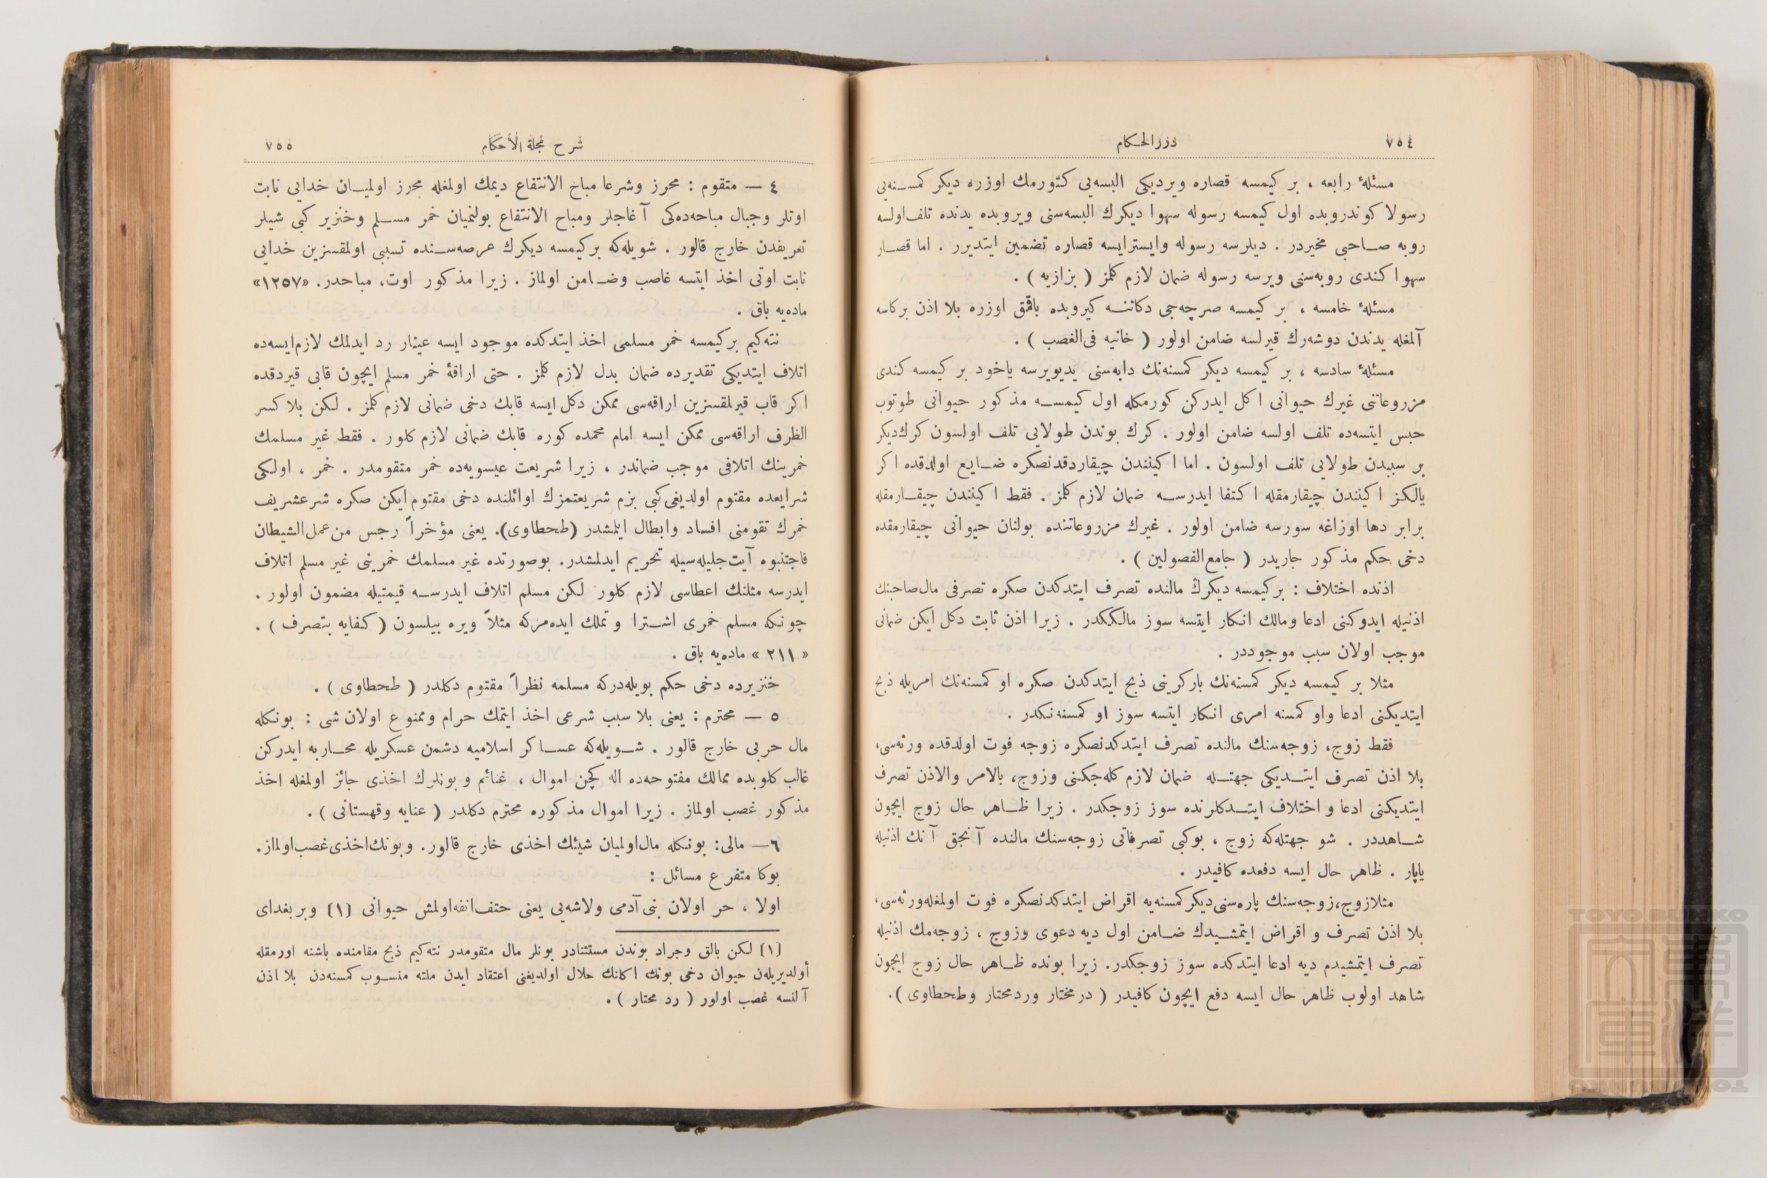 ٧٥٤
دررالحكام
مسئلۀ رابعه ، بر كيمسه قصاره ويرديكى البسه‌يى كتورمك اوزره ديكر كمسنه‌يى
رسولا كوندروبده اول كيمسه رسوله سهوا ديكرك البسه‌سنى ويروبده يدنده تلف‌اولسه
روبه صاحبى مخيردر . ديلرسه رسوله وايسترايسه قصاره تضمين ايتديرر . اما قصار
سهوا كندى روبه‌سنى ويرسه رسوله ضمان لازم كلمز ( بزازيه ) .
مسئلۀ خامسه ، بر كيمسه صرچه‌جى دكاننه كيروبده باقمق اوزره بلا اذن بركاسه
آلمغله يدندن دوشه‌رك قيرلسه ضامن اولور ( خانيه فى‌الغصب ) .
مسئلۀ سادسه ، بر كيمسه ديكر كمسنه‌نك دابه‌سنى يديويرسه ياخود بر كيمسه كندى
مزروعاتنى غيرك حيوانى اكل ايدركن كورمكله اول كيمسه مذكور حيوانى طوتوب
حبس ايتسه‌ده تلف اولسه ضامن اولور . كرك بوندن طولايى تلف اولسون كرك‌ديكر
بر سببدن طولايى تلف اولسون . اما اكينندن چيقاردقدنصكره ضايع اولدقده اكر
يالكز اكينندن چيقارمقله اكتفا ايدرسه ضمان لازم كلمز . فقط اكينندن چيقارمقله
برابر دها اوزاغه سورسه ضامن اولور . غيرك مزروعاتنده بولنان حيوانى چيقارمقده
دخى حكم مذكور جاريدر ( جامع‌الفصولين ) .
اذنده اختلاف : بركيمسه ديكرك مالنده تصرف ايتدكدن صكره تصرفى مال‌صاحبنك
اذنيله ايدوكنى ادعا ومالك انكار ايتسه سوز مالككدر . زيرا اذن ثابت دكل ايكن ضمانى
موجب اولان سبب موجوددر .
مثلا بر كيمسه ديكر كمسنه‌نك باركرينى ذبح ايتدكدن صكره او كمسنه‌نك امريله ذبح
ايتديكنى ادعا واو كمسنه امرى انكار ايتسه سوز او كمسنه‌نكدر .
فقط زوج، زوجه‌سنك مالنده تصرف ايتدكدنصكره زوجه فوت اولدقده ورثه‌سى،
بلا اذن تصرف ايتديكى جهتله ضمان لازم كله‌جكنى وزوج، بالامر والاذن تصرف
ايتديكنى ادعا و اختلاف ايتدكلرنده سوز زوجكدر . زيرا ظاهر حال زوج ايچون
شاهددر . شو جهتله‌كه زوج ، بوكبى تصرفاتى زوجه‌سنك مالنده آنجق آنك اذنيله
ياپار . ظاهر حال ايسه دفعده كافيدر .
مثلازوج،زوجه‌سنك پاره‌سنى‌ديكركمسنه‌يه اقراض ايتدكدنصكره فوت اولمغله‌ورثه‌سى،
بلا اذن تصرف و اقراض ايتمشيدك ضامن اول ديه دعوى وزوج ، زوجه‌مك اذنيله
تصرف ايتمشيدم ديه ادعا ايتدكده سوز زوجكدر. زيرا بونده ظاهر حال زوج ايچون
شاهد اولوب ظاهر حال ايسه دفع ايچون كافيدر ( درمختار وردمحتار وطحطاوى ).
شرح مجلة الأحكام
٧٥٥
٤ — متقوم : محرز وشرعا مباح الانتفاع ديمك اولمغله محرز اولميان خدايى نابت
اوتلر وجبال مباحه‌ده‌كى آغاجلر ومباح الانتفاع بولنميان خمر مسلم وخنزير كبى شيلر
تعريفدن خارج قالور . شويله‌كه بركيمسه ديكرك عرصه‌سنده تسببى اولمقسزين خدايى
نابت اوتى اخذ ايتسه غاصب وضامن اولماز . زيرا مذكور اوت، مباحدر. «١٢٥٧»
ماده‌يه باق .
نته‌كيم بركيمسه خمر مسلمى اخذ ايتدكده موجود ايسه عينا رد ايدلمك لازم‌ايسه‌ده
اتلاف ايتديكى تقديرده ضمان بدل لازم كلمز . حتى اراقۀ خمر مسلم ايچون قابى قيردقده
اكر قاب قيرلمقسزين اراقه‌سى ممكن دكل ايسه قابك دخى ضمانى لازم كلمز . لكن بلا كسر
الظرف اراقه‌سى ممكن ايسه امام محمده كوره قابك ضمانى لازم كلور . فقط غير مسلمك
خمرينك اتلافى موجب ضماندر ، زيرا شريعت عيسويه‌ده خمر متقومدر . خمر ، اولكى
شرايعده مقتوم اولديغى‌كبى بزم شريعتمزك اوائلنده دخى مقتوم ايكن صكره شرع‌شريف
خمرك تقومنى افساد وابطال ايلمشدر (طحطاوى). يعنى مؤخراً رجس من‌عمل‌الشيطان
فاجتنبوه آيت‌جليله‌سيله تحريم ايدلمشدر. بوصورتده غير مسلمك خمرينى غير مسلم اتلاف
ايدرسه مثلنك اعطاسى لازم كلور لكن مسلم اتلاف ايدرسه قيمتيله مضمون اولور .
چونكه مسلم خمرى اشترا و تملك ايده‌مزكه مثلاً ويره بيلسون ( كفايه بتصرف ) .
« ٢١١ » ماده‌يه باق .
خنزيرده دخى حكم بويله‌دركه مسلمه نظراً مقتوم دكلدر ( طحطاوى ) .
٥ — محترم : يعنى بلا سبب شرعى اخذ ايتمك حرام وممنوع اولان شى : بونكله
مال حربى خارج قالور . شويله‌كه عساكر اسلاميه دشمن عسكريله محاربه ايدركن
غالب كلوبده ممالك مفتوحه‌ده اله كچن اموال ، غنائم و بونلرك اخذى جائز اولمغله اخذ
مذكور غصب اولماز . زيرا اموال مذكوره محترم دكلدر ( عنايه وقهستانى ) .
٦— مالى: بونكله مال‌اولميان شيئك اخذى خارج قالور. وبونك‌اخذى‌غصب‌اولماز.
بوكا متفرع مسائل :
اولا ، حر اولان بنى‌آدمى ولاشه‌يى يعنى حتف‌انفه‌اولمش حيوانى (١) وبربغداى
(١) لكن بالق وجراد بوندن مستثنادر بونلر مال متقومدر نته‌كيم ذبح مقامنده باشنه اورمقله
أولديريلەن حيوان دخى بونك اكلنك حلال اولديغنى اعتقاد ايدن ملته منسوب كمسنه‌دن بلا اذن
آلنسه غصب اولور ( رد محتار ) .
TOYO BUNKO